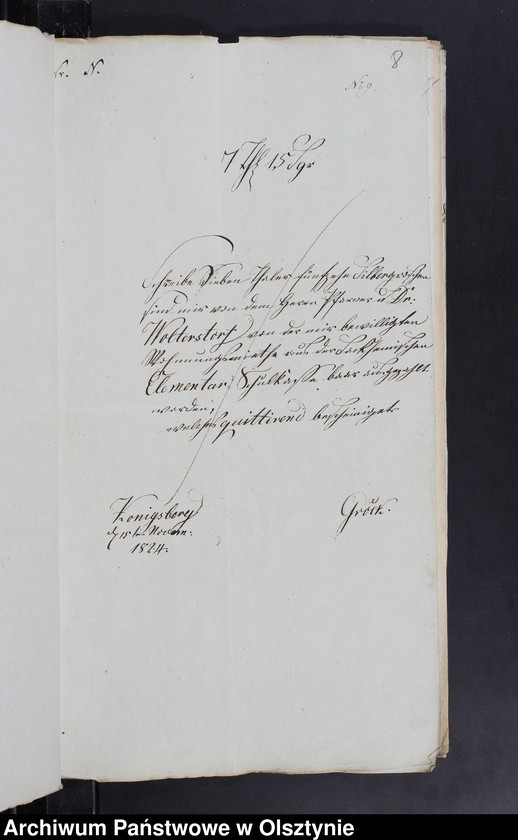 8
No 9.
7 Thl 15 Sgr
Schreibe Sieben Thaler fünfzehn Silbergroschen
sind mir von dem Herrn Pfarrer u Dr.
Wolterstorf von der mir bewilligten
Wohnungsmiethe aus der Sackheimschen
Elementar Schulkasse baar ausgezahlt
worden,
welches quittirend bescheinige
Königsberg
d 15t Novem:
1824.
Gröck.
Archiwum Państwowe w Olsztynie